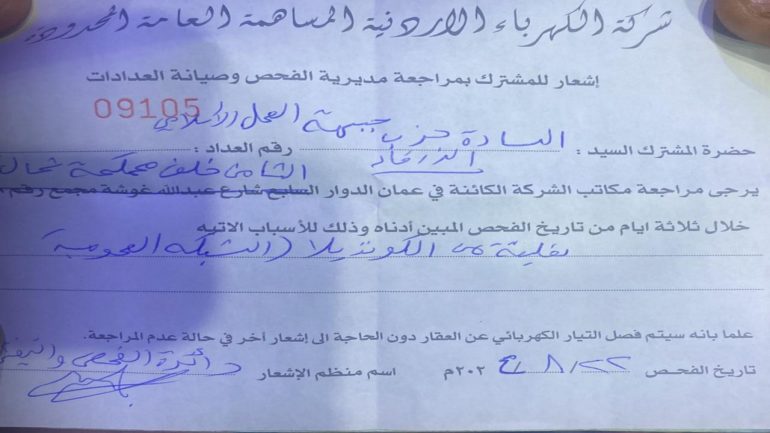 شركة الكهرباء الاردنية المساهمة العامة المحدودة
إشعار للمشترك بمراجعة مديرية الفحص وصيانة العدادات
09105
حضرة المشترك السيد : السادة حزب جبهة العمل الإسلامي رقم العداد :
الزرقاء
الثامن خلف محكمة شمال
يرجى مراجعة مكاتب الشركة الكائنة في عمان الدوار السابع شارع عبدالله غوشة مجمع رقم
خلال ثلاثة ايام من تاريخ الفحص المبين أدناه وذلك للأسباب الاتيه
من (الشبكه العمومية
علما بانه سيتم فصل التيار الكهربائي عن العقار دون الحاجة الى إشعار أخر في حالة عدم المراجعة.
تاريخ الفحص ٢٢/٨/ ٢٠٢٤م اسم منظم الإشعار دائرة الفحص والتفتيش